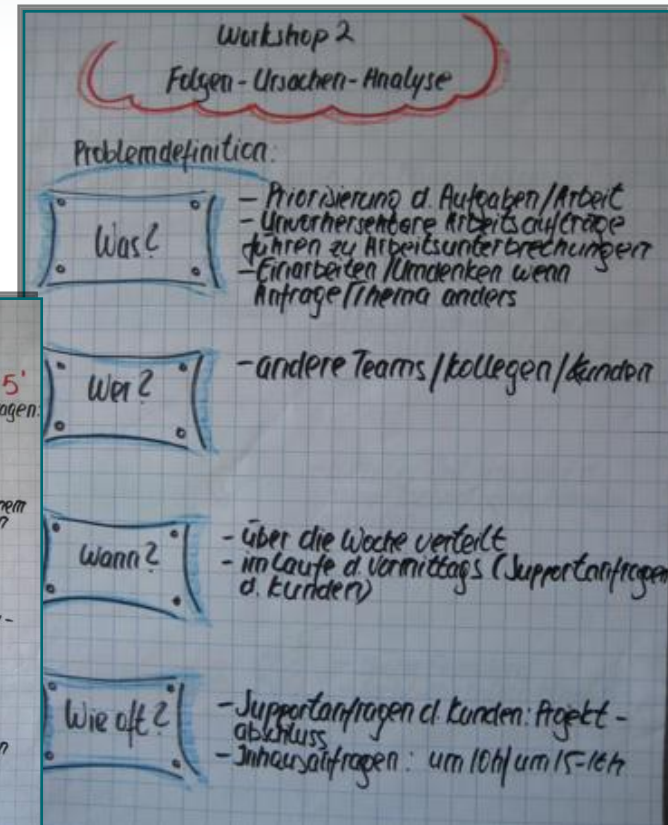 Workshop 2
Folgen-Ursachen-Analyse
Problemdefinition:
Was?
- Priorisierung d. Aufgaben/Arbeit
- Unvorhersehbare Arbeitsaufträge
führen zu Arbeitsunterbrechungen
- Einarbeiten/Umdenken wenn
Anfrage/Thema anders
Wer?
- andere Teams/Kollegen/Kunden
Wann?
- über die Woche verteilt
- im Laufe d. Vormittags (Supportanfragen
d. Kunden)
Wie oft?
- Supportanfragen d. Kunden: Projekt-
abschluss
- Inhausanfragen: um 10h/um 15-16h
5'